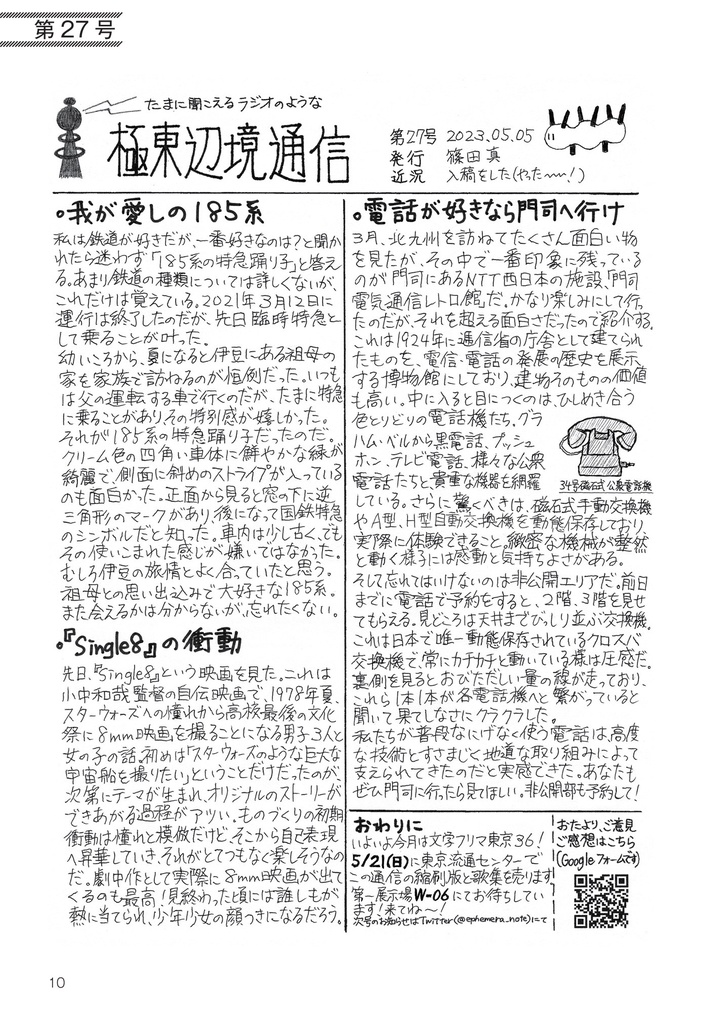 第27号
たまに聞こえるラジオのような
極東辺境通信
第27号 2023.05.05
発行 篠田真
近況 入稿をした(やった〜〜!)
。我が愛しの185系
私は鉄道が好きだが、一番好きなのは?と聞か
れたら迷わず「185系の特急踊り子」と答え
る。あまり鉄道の種類については詳しくないが、
これだけは覚えている。2021年3月12日に
運行は終了したのだが、先日臨時特急と
して乗ることが叶った。
幼いころから、夏になると伊豆にある祖母の
家を家族で訪ねるのが恒例だった。いつも
は父の運転する車で行くのだが、たまに特急
に乗ることがあり、その特別感が嬉しかった。
それが185系の特急踊り子だったのだ。
クリーム色の四角い車体に鮮やかな緑が
綺麗で、側面に斜めのストライプが入っている
のも面白かった。正面から見ると窓の下に逆
三角形のマークがあり、後になって国鉄特急
のシンボルだと知った。車内は少し古く、でも
その使いこまれた感じが嫌いではなかった。
むしろ伊豆の旅情とよく合っていたと思う。
祖母との思い出込みで大好きな185系。
また会えるかは分からないが、忘れたくない。
。『Single8』の衝動
先日、『Single8』という映画を見た。これは
小中和哉監督の自伝映画で、1978年夏、
スターウォーズへの憧れから高校最後の文化
祭に8mm映画を撮ることになる男子3人と
女の子の話。初めは「スターウォーズのような巨大な
宇宙船を撮りたい」ということだけだったのが、
次第にテーマが生まれ、オリジナルのストーリーが
できあがる過程がアツい。ものづくりの初期
衝動は憧れと模倣だけど、そこから自己表現
へ昇華していき、それがとてつもなく楽しそうなの
だ。劇中作として実際に8mm映画が出て
くるのも最高!見終わった頃には誰しもが
熱に当てられ、少年少女の顔つきになるだろう。
。電話が好きなら門司へ行け
3月、北九州を訪ねてたくさん面白い物
を見たが、その中で一番印象に残っている
のが門司にあるNTT西日本の施設、「門司
電気通信レトロ館」だ。かなり楽しみにして行っ
たのだが、それを超える面白さだったので紹介する。
これは1924年に逓信省の庁舎として建てられ
たものを、電信・電話の発展の歴史を展示
する博物館にしており、建物そのものの価値
も高い。中に入ると目につくのは、ひしめき合う
色とりどりの電話機たち。グラ
ハム・ベルから黒電話、プッシュ
ホン、テレビ電話、様々な公衆
電話たちと貴重な機器を網羅
34号磁石式公衆電話機
している。さらに驚くべきは、磁石式手動交換機
やA型、H型自動交換機を動態保存しており、
実際に体験できること。緻密な機械が整然
と動く様子には感動と気持ちよさがある。
そして忘れてはいけないのは非公開エリアだ。前日
までに電話で予約をすると、2階、3階を見せ
てもらえる。見どころは天井までびっしり並ぶ交換機。
これは日本で唯一動態保存されているクロスバ
交換機で、常にカチカチと動いている様は圧感だ。
裏側を見るとおびただしい量の線が走っており、
これら1本1本が各電話機へと繋がっていると
聞いて果てしなさにクラクラした。
私たちが普段なにげなく使う電話は、高度
な技術とすさまじく地道な取り組みによって
支えられてきたのだと実感できた。あなたも
ぜひ門司に行ったら見てほしい。非公開部も予約して!
おわりに
いよいよ今月は文学フリマ東京36!
5/21(日)に東京流通センターで
この通信の縮刷版と歌集を売ります
第一展示場W-06にてお待ちしてい
ます!来てね〜!
次号のお知らせはTwitter(@ephemera_note)にて
おたより、ご意見
ご感想はこちら
(Googleフォームです)
10